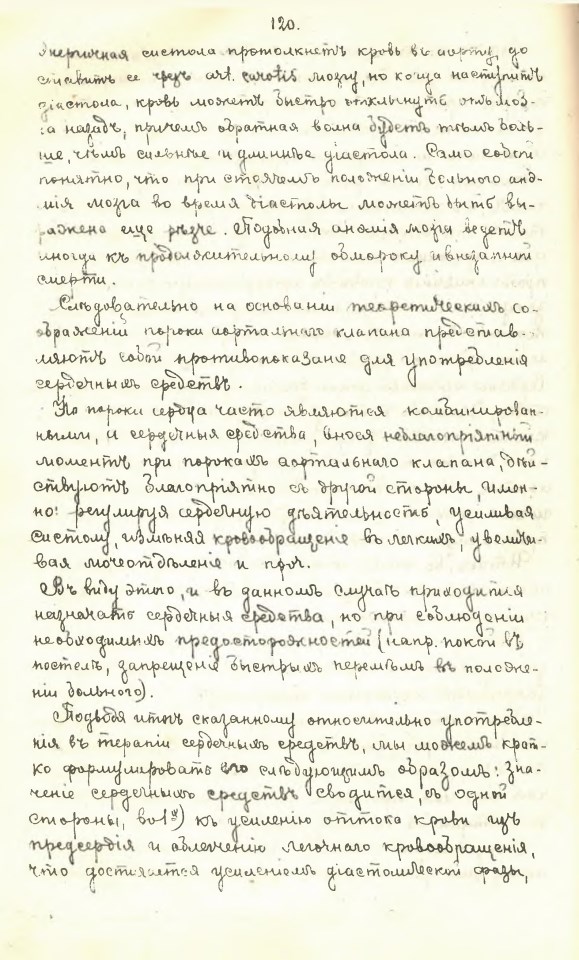 120.
энергичная систола протолкнетъ кровь въ аорту, до
ставитъ ее чрезъ art. carotis мозгу, но когда наступитъ
діастола, кровь можетъ быстро отхлынуть отъ моз-
га назадъ, причемъ обратная волна будетъ тѣмъ боль-
ше, чѣмъ сильнѣе и длиннѣе діастола. Само собой
понятно, что при стоячемъ положеніи больного анэ-
мія мозга во время діастолы можетъ быть вы-
ражена еще рѣзче. Подобная анэмія мозга ведетъ
иногда къ продолжительному обмороку и внезапной
смерти.
Слѣдовательно на основаніи теоретическихъ со-
ображеній пороки аортальнаго клапана представ-
ляютъ собой противопоказаніе для употребленія
сердечныхъ средствъ.
Но пороки сердца часто являются комбинирован-
ными, и сердечныя средства, внося неблагопріятный
моментъ при порокахъ аортальнаго клапана, дѣй-
ствуютъ благопріятно съ другой стороны, имен-
но: регулируя сердечную дѣятельность, усиливая
систолу, измѣняя кровообращеніе въ легкихъ, увеличи-
вая мочеотдѣленіе и проч.
Въ виду этого, и въ данномъ случаѣ приходится
назначать сердечныя средства, но при соблюденіи
необходимыхъ предосторожностей (напр. покой въ
постелѣ, запрещеніе быстрыхъ перемѣнъ въ положе-
ніи больного).
Подводя итогъ сказанному относительно употребле-
нія въ терапіи сердечныхъ средствъ, мы можемъ крат-
ко формулировать его слѣдующимъ образомъ: зна-
ченіе сердечныхъ средствъ сводится, съ одной
стороны, во 1ыхъ) къ усиленію оттока крови изъ
предсердія и облегченію легочнаго кровообращенія,
что достигается усиленіемъ діастолической фазы,